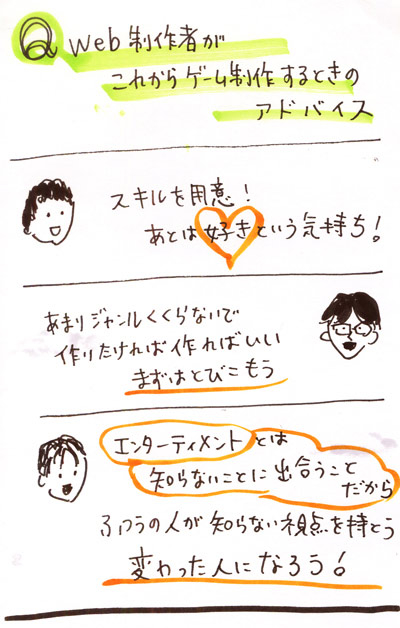 Q Web制作者が
これからゲーム制作するときの
アドバイス
スキルを用意!
あとは好きという気持ち!
あまりジャンルくくらないで
作りたければ作ればいい
まずはとびこもう
エンターティメントとは
知らないことに出合うこと
だから
ふつうの人が知らない視点を持とう
変わった人になろう!